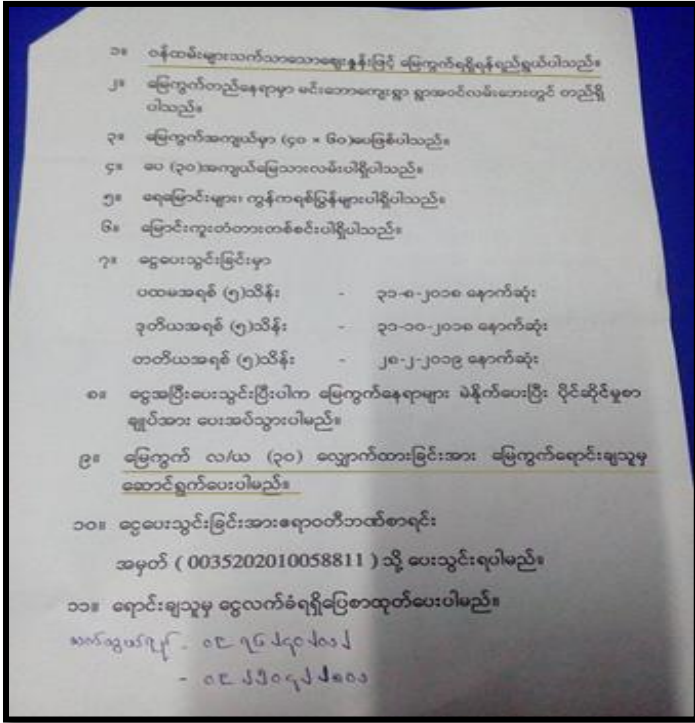 ၁။ ဝန်ထမ်းများသက်သာသောဈေးနှုန်းဖြင့် မြေကွက်ရရှိရန်ရည်ရွယ်ပါသည်။
၂။ မြေကွက်တည်နေရာမှာ မင်းဘောကျေးရွာ ရွာအဝင်လမ်းဘေးတွင် တည်ရှိ
ပါသည်။
၃။ မြေကွက်အကျယ်မှာ (၄၀ × ၆၀)ပေဖြစ်ပါသည်။
၄။ ပေ (၃၀)အကျယ်မြေသားလမ်းပါရှိပါသည်။
၅။ ရေမြောင်းများ၊ ကွန်ကရစ်ပြွန်များပါရှိပါသည်။
၆။ မြောင်းကူးတံတားတစ်စင်းပါရှိပါသည်။
၇။ ငွေပေးသွင်းခြင်းမှာ
ပထမအရစ် (၅)သိန်း - ၃၁-၈-၂၀၁၈ နောက်ဆုံး
ဒုတိယအရစ် (၅)သိန်း - ၃၁-၁၀-၂၀၁၈ နောက်ဆုံး
တတိယအရစ် (၅)သိန်း - ၂၈-၂-၂၀၁၉ နောက်ဆုံး
၈။ ငွေအပြီးပေးသွင်းပြီးပါက မြေကွက်နေရာများ မဲနှိုက်ပေးပြီး ပိုင်ဆိုင်မှုစာ
ချုပ်အား ပေးအပ်သွားပါမည်။
၉။ မြေကွက် လ/ယ (၃၀) လျှောက်ထားခြင်းအား မြေကွက်ရောင်းချသူမှ
ဆောင်ရွက်ပေးပါမည်။
၁၀။ ငွေပေးသွင်းခြင်းအားဧရာဝတီဘဏ်စာရင်း
အမှတ် ( 0035202010058811 ) သို့ ပေးသွင်းရပါမည်။
၁၁။ ရောင်းချသူမှ ငွေလက်ခံရရှိပြေစာထုတ်ပေးပါမည်။